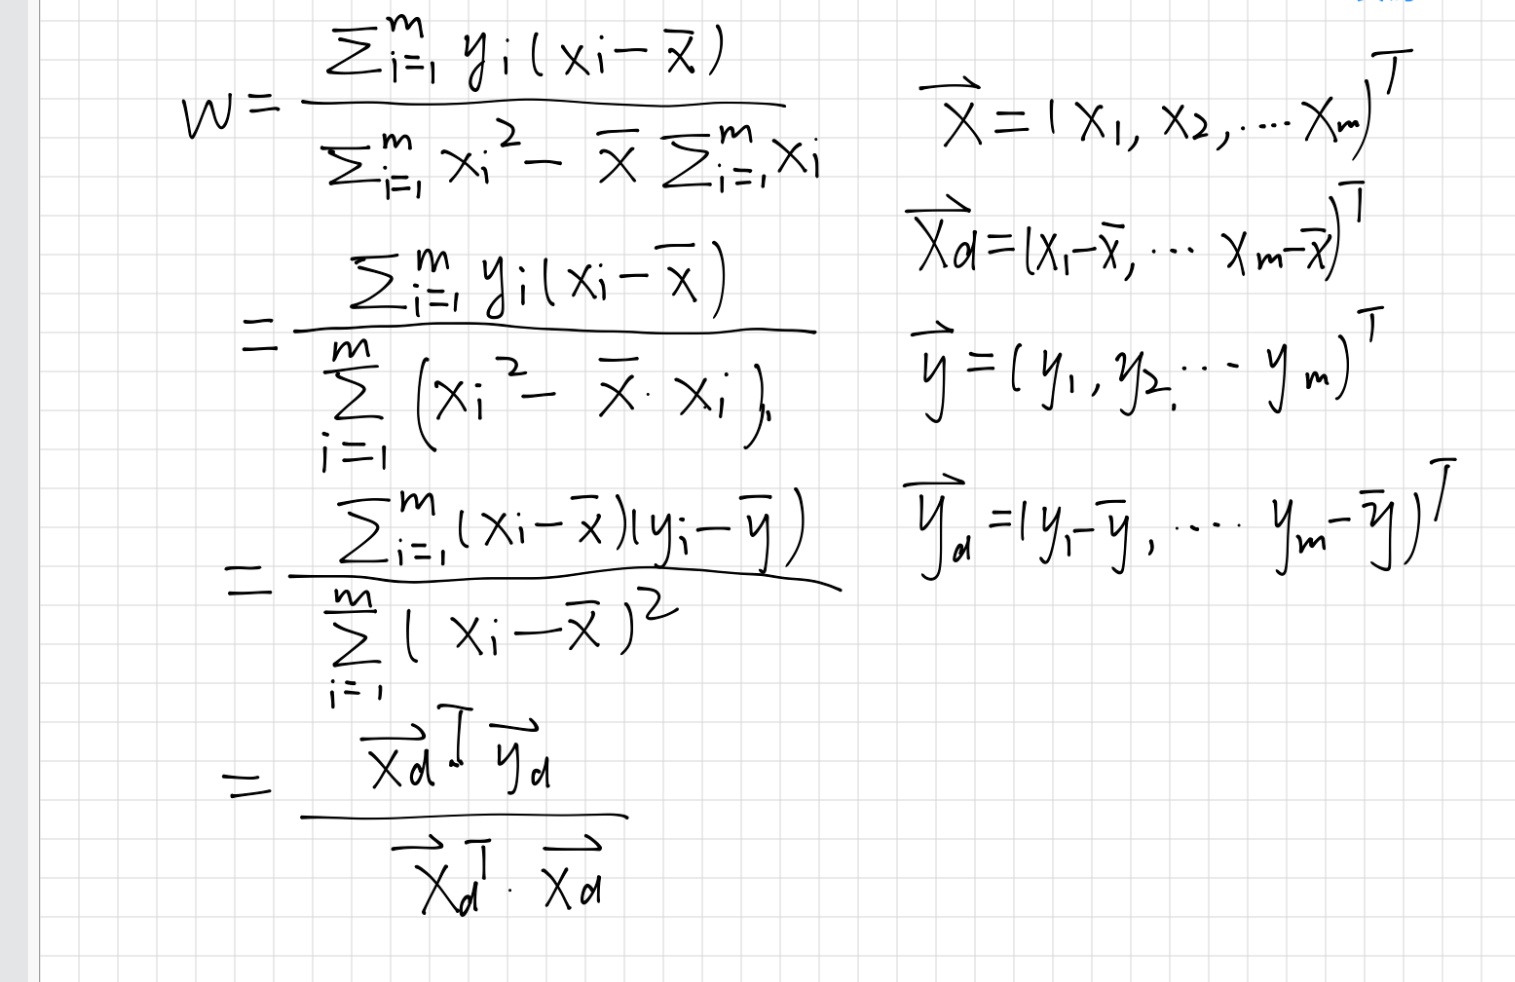 w = \frac{\sum_{i=1}^{m} y_i (x_i - \overline{x})}{\sum_{i=1}^{m} x_i^2 - \overline{x} \sum_{i=1}^{m} x_i}
= \frac{\sum_{i=1}^{m} y_i (x_i - \overline{x})}{\sum_{i=1}^{m} (x_i^2 - \overline{x} \cdot x_i)}
= \frac{\sum_{i=1}^{m} (x_i - \overline{x})(y_i - \overline{y})}{\sum_{i=1}^{m} (x_i - \overline{x})^2}
= \frac{\overrightarrow{x_d}^T \overrightarrow{y_d}}{\overrightarrow{x_d}^T \cdot \overrightarrow{x_d}}
\overrightarrow{x} = (x_1, x_2, \cdots x_m)^T
\overrightarrow{x_d} = (x_1 - \overline{x}, \cdots x_m - \overline{x})^T
\overrightarrow{y} = (y_1, y_2, \cdots y_m)^T
\overrightarrow{y_d} = (y_1 - \overline{y}, \cdots y_m - \overline{y})^T